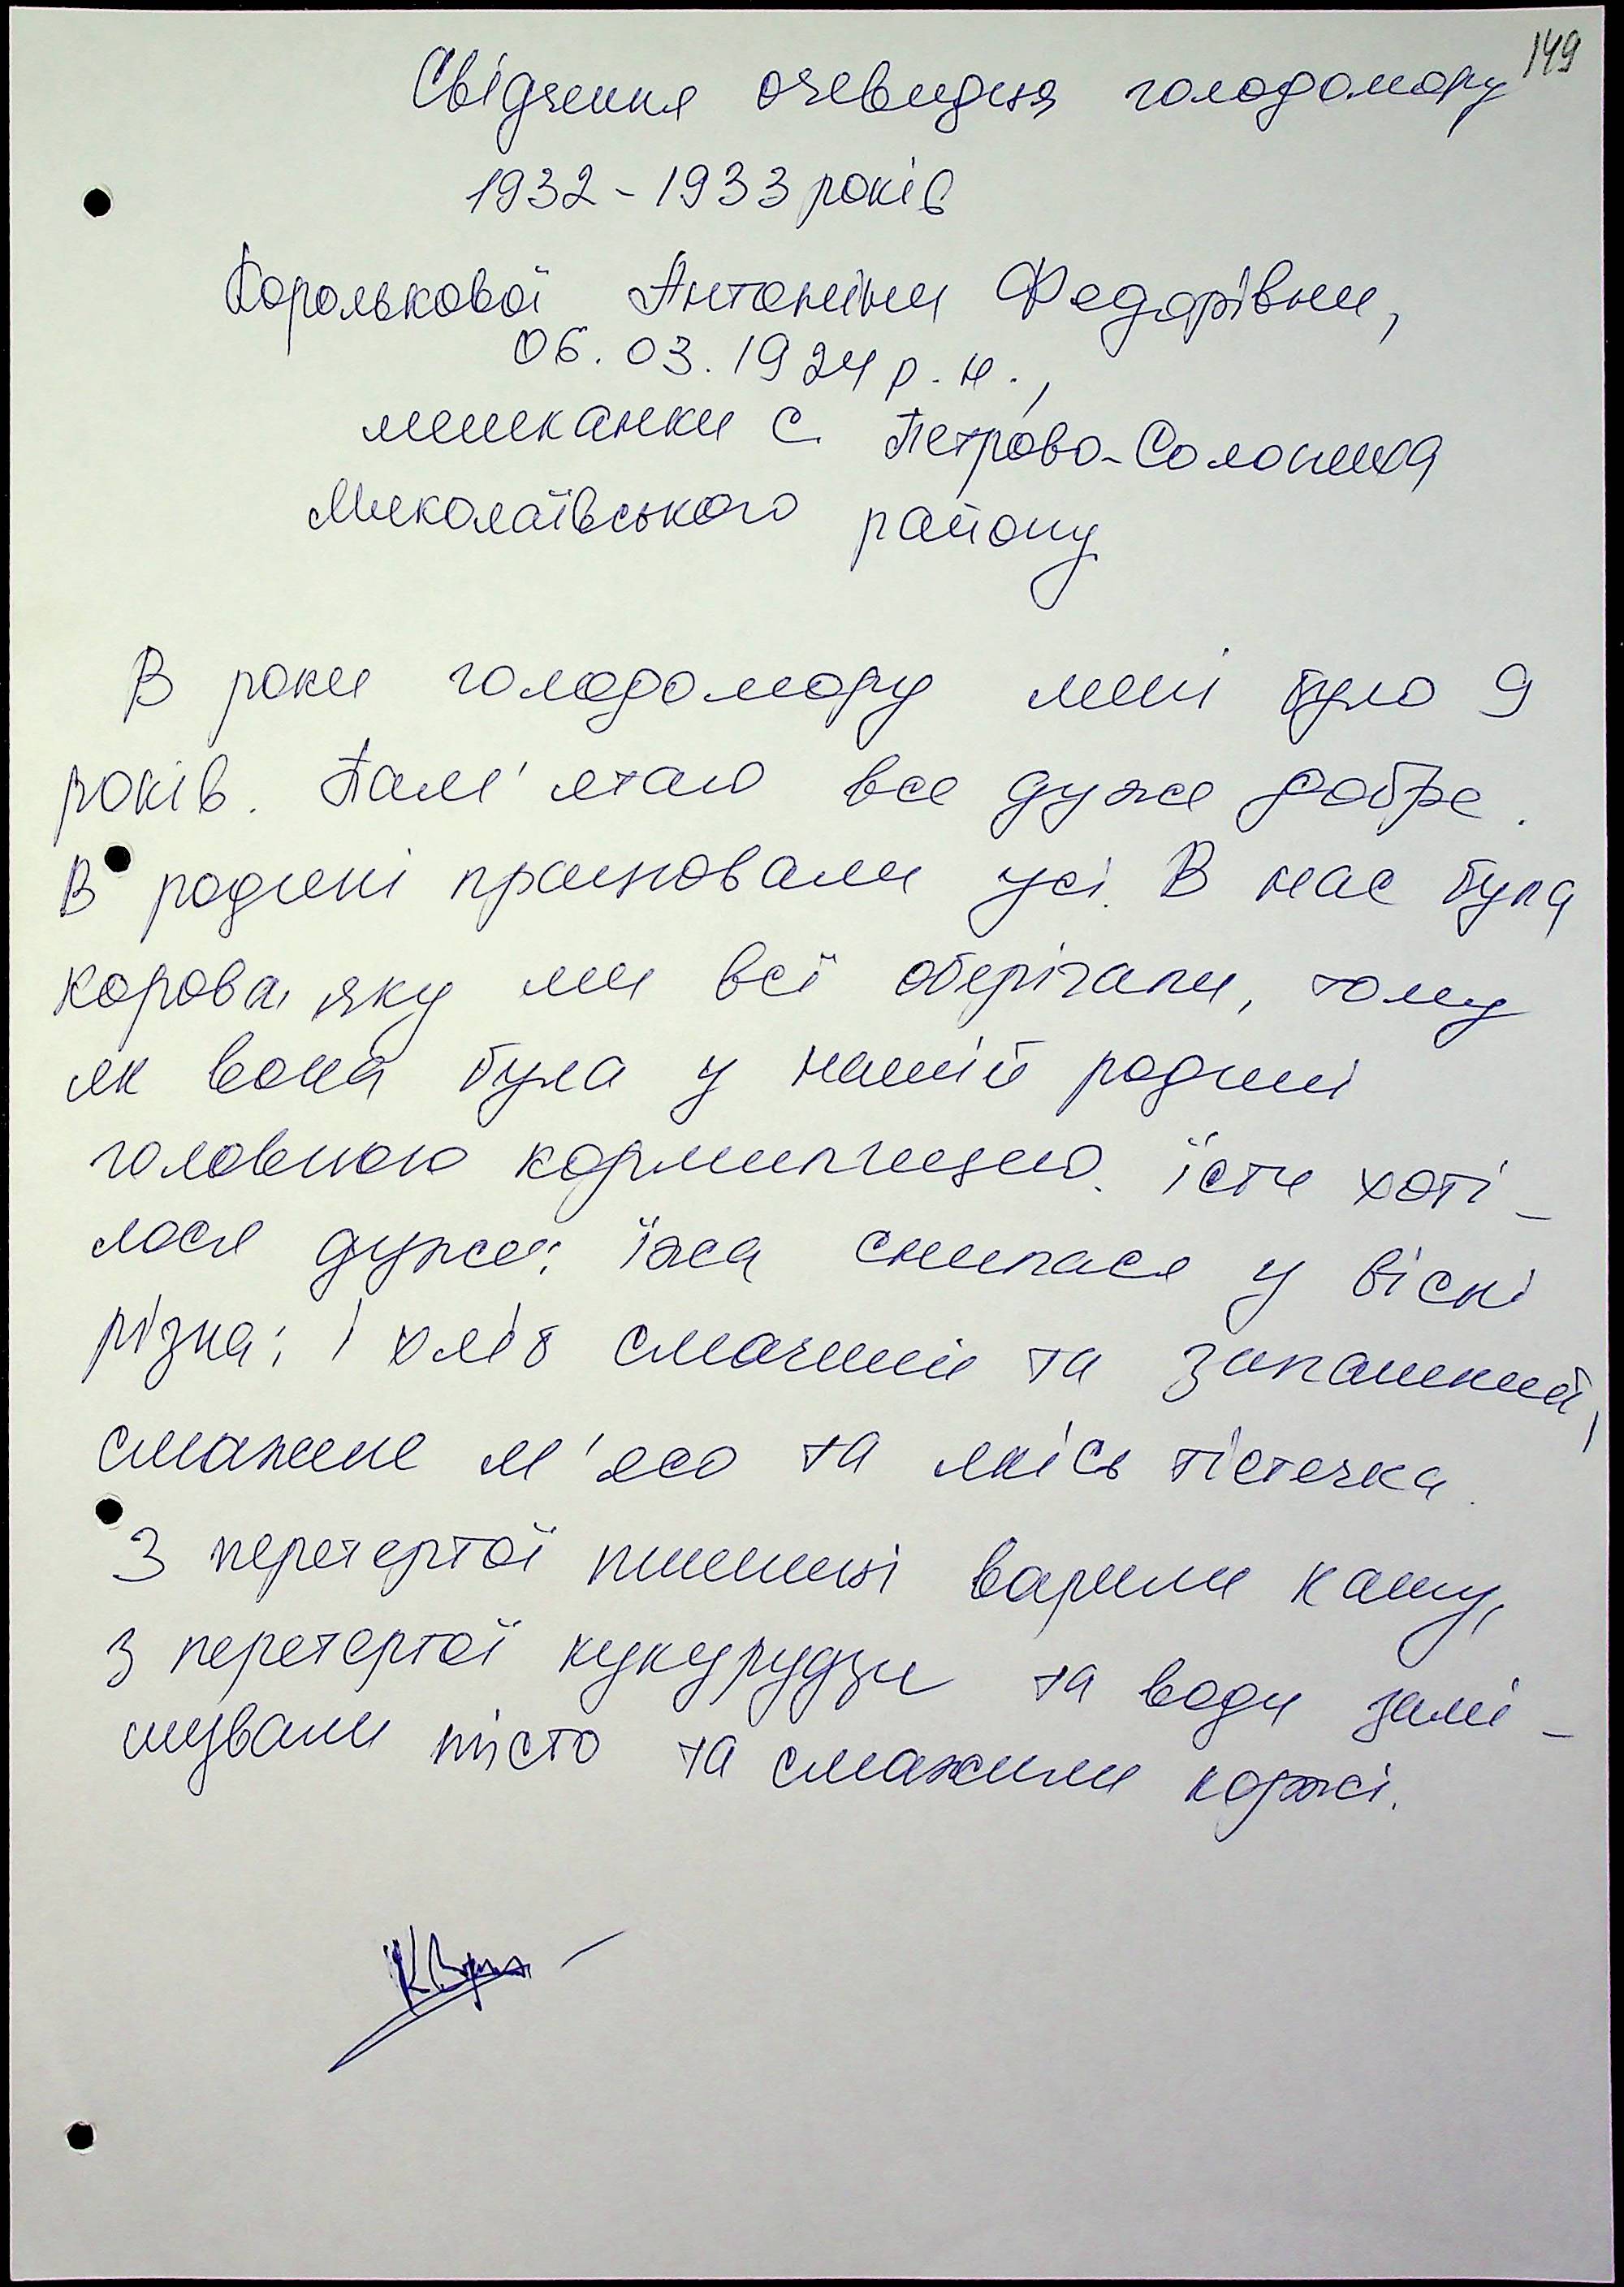 149
Свідчення очевидця голодомору
1932-1933 років
Королькової Антоніни Федорівни,
06.03.1924 р.н.,
мешканки с. Петрово-Солониха
Миколаївського району
В роки голодомору мені було 9
років. Пам'ятаю все дуже добре.
В родині працювали усі. В нас була
корова, яку ми всі оберігали, тому
як вона була у нашій родині
головною кормилицею. їсти хоті-
лося дуже; їжа снилася у вісні
різна: і хліб смачний та запашний,
смажене м'ясо та якісь тістечка.
З перетертої пшениці варили кашу,
з перетертої кукурудзи та води замі-
шували тісто та смажили коржі.